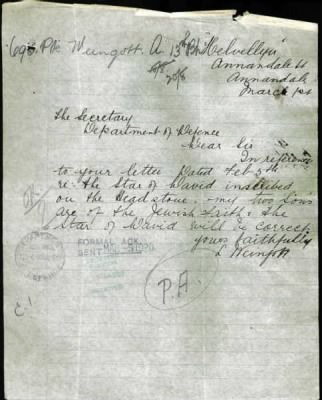 695 Pte Weingott. A. 13th Bn "Helvellyn"
Annandale St
Annandale
March 1st
The Secretary
Department of Defence
Dear Sir
In reference
to your letter Dated Feb 5th
re. the Star of David inscribed
on the Headstone. my two Sons
are of the Jewish Faith & the
Star of David will be correct.
yours faithfully
L Weingott
FORMAL ACK.
SENT 1920
P.A.